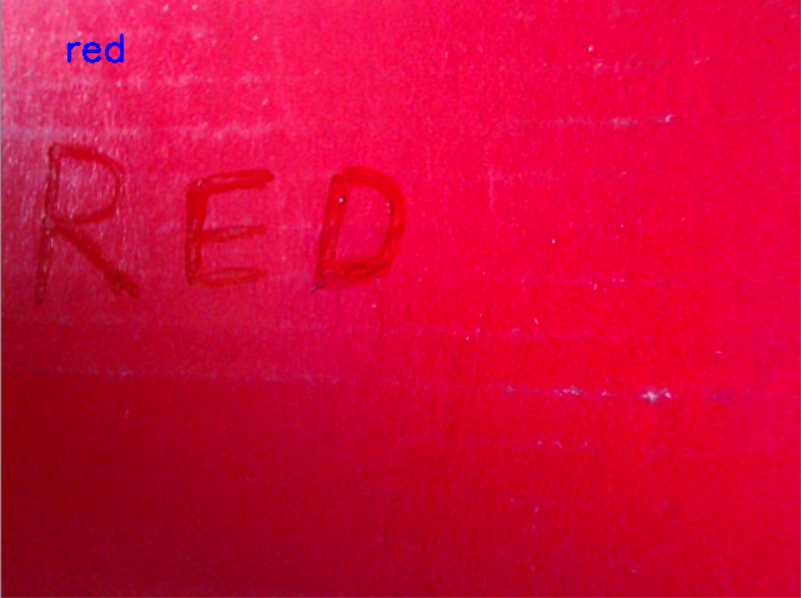 red
RED